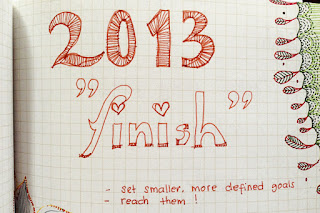 2013
"finish"
- set smaller, more defined goals
- reach them !